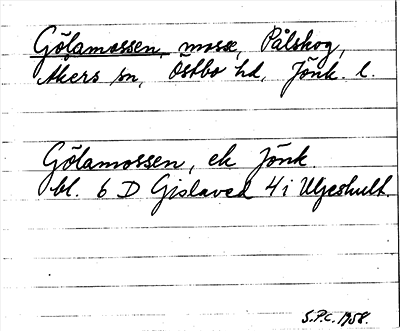 Gölamossen, mosse, Pålskog,
Åkers sn, Östbo hd, Jönk. l.
Gölamossen, ek Jönk.
bl. 6 D Gislaved 4i Uljeshult.
S.P.C. 1958.